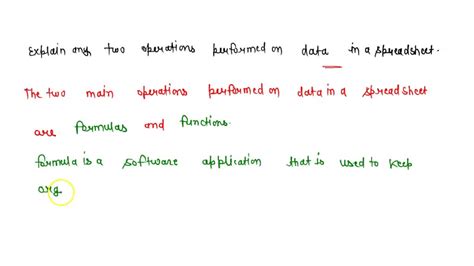 Explain any two operations performed on data in a spreadsheet.
The two main operations performed on data in a spreadsheet
are formulas and functions.
formula is a software application that is used to keep
org